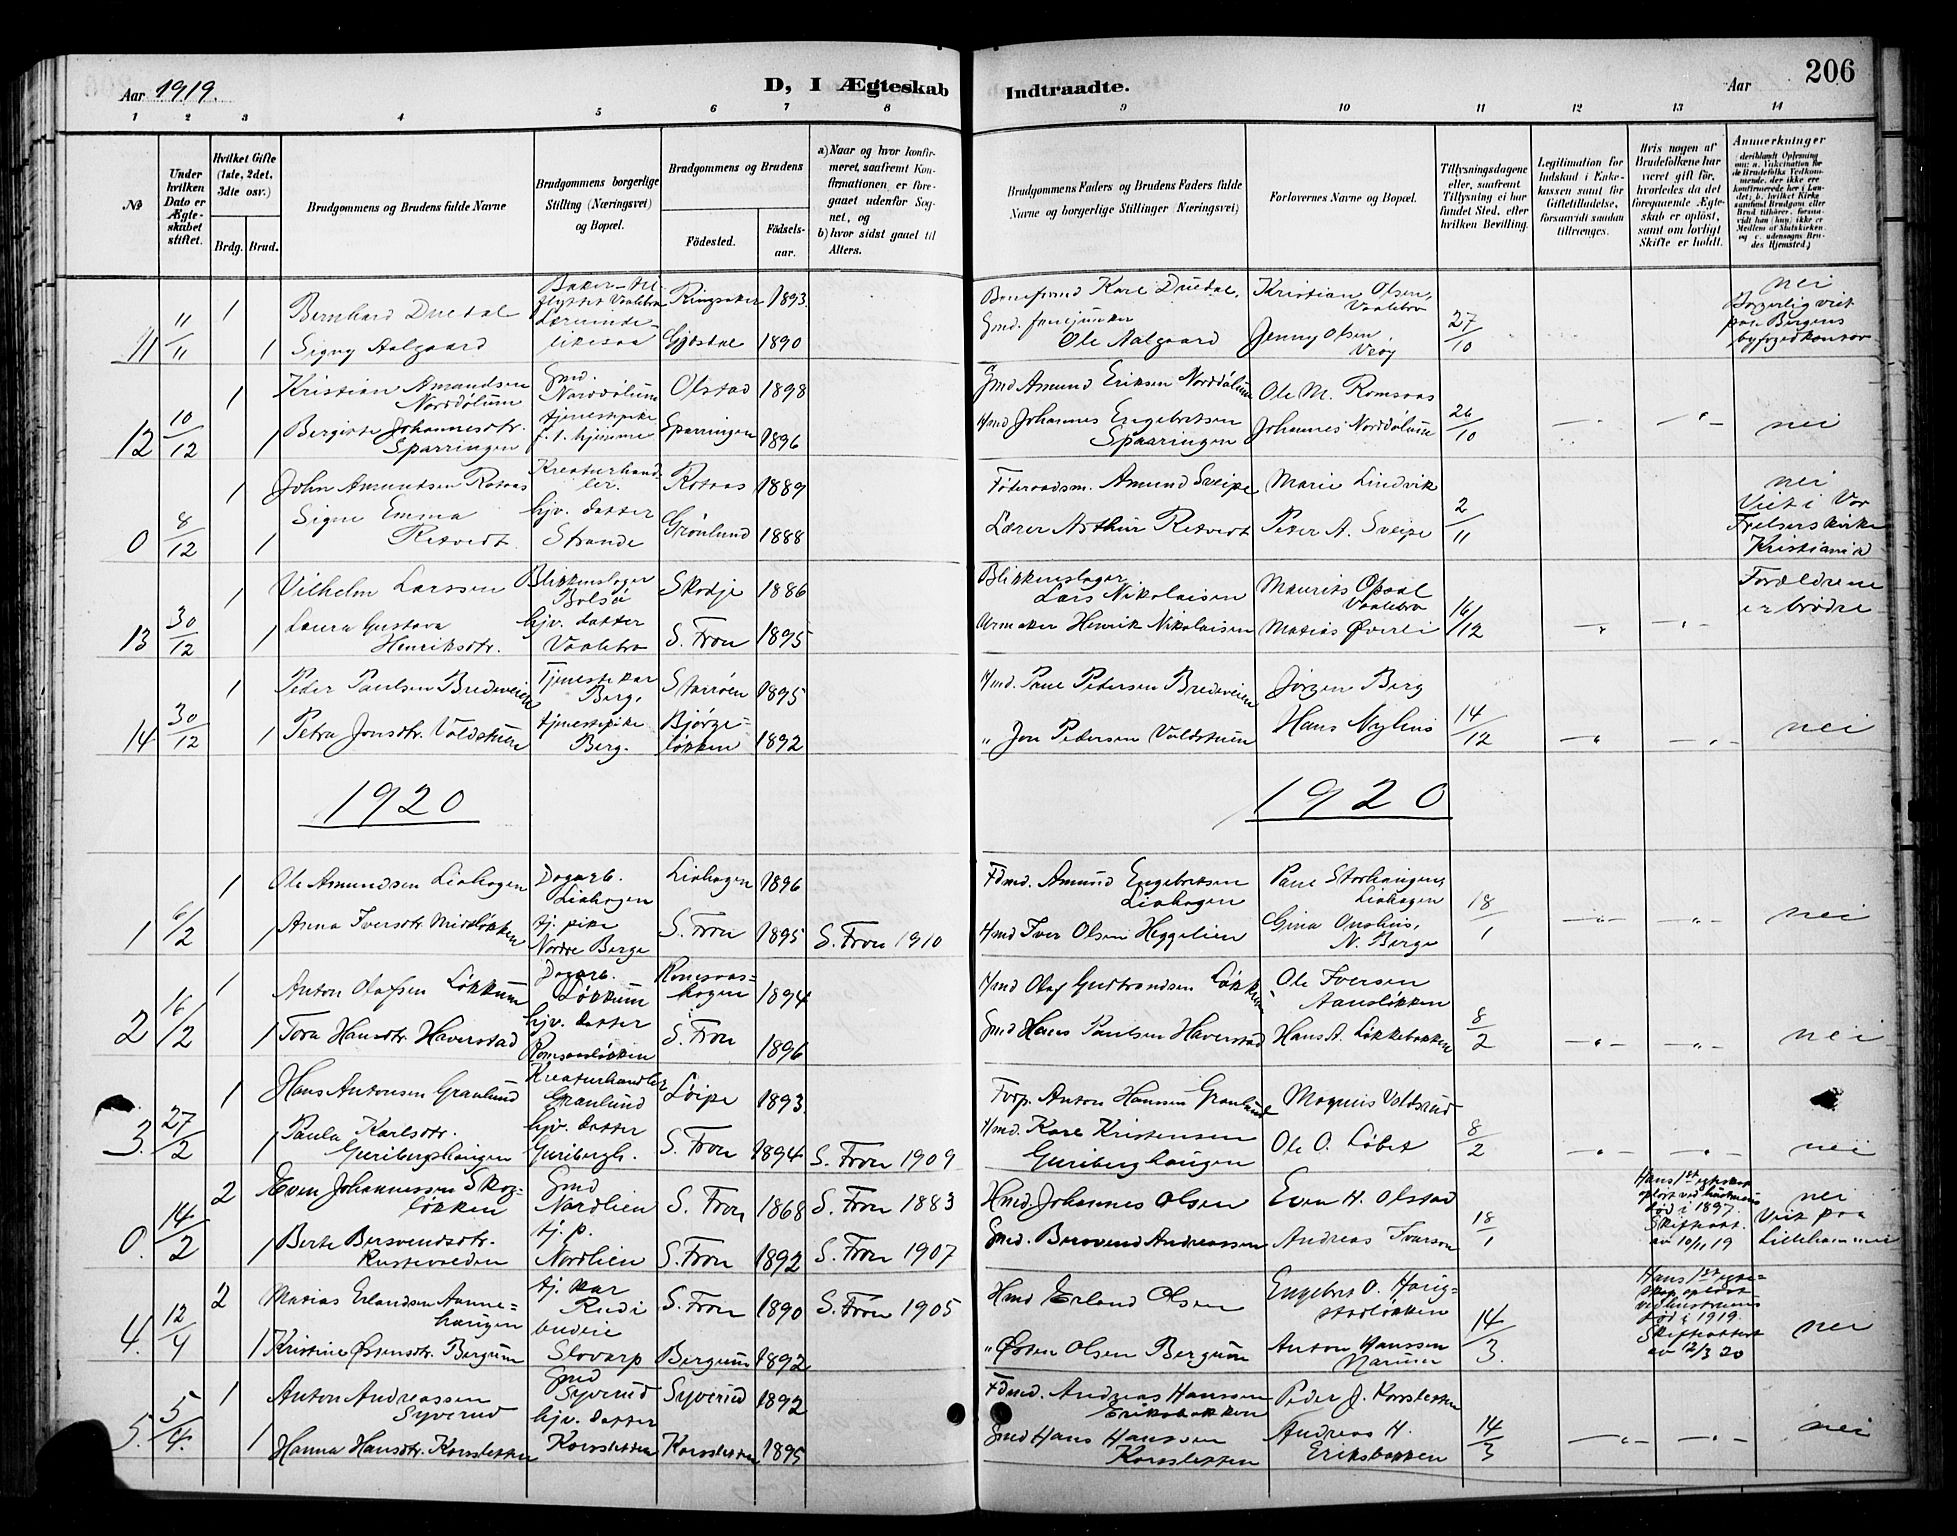 206
Aar 1919.
D, I Ægteskab Indtraadte.
Aar
1 2 3 4 5 6 7 8 9 10 11 12 13 14
№
Under hvilken Dato er Ægte-skabet stiftet.
Hvilket Gifte (1ste, 2det, 3die osv.)
Brdg. Brud.
Brudgommens og Brudens fulde Navne
Brudgommens borgerlige Stilling (Næringsvei) og Bopæl.
Brudgommens og Brudens
Fødested. Fødsels-aar.
a) Naar og hvor konfir-meret, saafremt Kon-firmationen er fore-gaaet udenfor Sog-net, og
b) hvor sidst gaaet til Alters.
Brudgommens Faders og Brudens Faders fulde Navne og borgerlige Stillinger (Næringsvei)
Forlovernes Navne og Bopæl.
Tillysningsdagene eller, saafremt Tillysning ei har fundet Sted, efter hvilken Bevilling.
Legitimation for Indskud i Enke-kassen samt for Giftetilladelse, forsaavidt saadan tiltrænges.
Hvis nogen af Brudefolkene har været gift før, hvorledes da det foregaaende Ægte-skab er opløst, samt om lovligt Skifte er holdt.
Anmerkninger
11 11/11 1 Bernhard Duedal Ringsaker 1893 Kristian Olsen, Vaalebro nei
1 Signy Aalgaard Gjesdal 1890 Ole Aalgaard Jenny Olsen 27/10 Borgerlig viet paa Bergens byfogedkontor
12 10/12 1 Kristian Amundsen Norddølum Gmd. Norddølum Olstad 1898 Gmd Amund Eriksen Norddølum Ole M. Romsaas
1 Bergitte Johannesdtr. Sparringen tjenestepike f.t. hjemme Sparringen 1896 Hmd Johannes Engebretsen Sparringen Johannes Norddølum 26/10 nei
0 8/12 1 John Amundsen Rotaas Kreaturhand-ler. Rotaas 1889 Føderaadsm. Amund Sveipe Marie Lindvik nei
1 Signe Emma Retvedt. hjv. datter Strande Grønlund 1888 Lærer Arthur Retvedt Peter A. Sveipe 2/11 Viet i Vor Frelsers kirke Kristiania
13 30/12 1 Vilhelm Larssen Blikkenslager Bolsø Skodje 1886 Blikkenslager Lars Nikolaisen Maurits Opsal Vaalebro Forældrene er brødre
1 Laura Gustava Henriksdtr. hjv. datter Vaalebro S. Fron 1895 Urmaker Henrik Nikolaisen Matias Øverli 16/12
14 30/12 1 Peder Paulsen Bredeveien Tjenestekar Berg. 1895 Hmd. Paul Pedersen Bredeveien Jørgen Berg
1 Petra Jonsdtr. Voldstuen tjenestepike Berg. Bjørge-løkken 1892 " Jon Pedersen Voldstuen Hans Nyhus 14/12 nei
1920 1920
1 6/2 1 Ole Amundsen Liahagen Dagarb. Liahagen Liahagen 1896 Fdmd. Amund Engebretsen Liahagen Paul Storhaugen, Liahagen
1 Anna Iversdtr. Midtløkken tj. pike Nordre Berge S. Fron 1895 S. Fron 1910 Hmd Iver Olsen Heggelien Gina N. Berge 18/1 nei
2 16/2 1 Anton Olafsen Løkkum Dagarb. Løkkum Romsaas-hagen 1894 Hmd Olaf Gudbrandsen Løkken Ole Iversen Aansløkken
1 Tora Hansdtr. Haverstad hjv. datter Romsaasløkken S. Fron 1896 Gmd Hans Paulsen Haverstad Hans A. Løkkebakken 8/2 nei
3. 27/2 1 Hans Antonsen Granlund Kreaturhandler Granlund Løipe 1893. Forp. Anton Hanssen Granlund Magnus Voldsrud
1 Paula Karlsdtr. Guribergshaugen hjv. datter Guribergh. S. Fron 1894 S. Fron 1909 Hmd. Karl Kristensen Guriberghaugen Ole O. Løbet 8/2 nei
0. 14/2 2 Even Johannessen Skog-løkken Gmd Nordlien S. Fron 1868 S. Fron 1883 Hmd. Johannes Olsen Even H. Olstad Hans 1ste egteskap opløst ved hustruens død i 1897. Skifteatt. av 10/11 19 nei
1 Berte Bersvendsdtr. Rustevolden tj. p. Nordlien S. Fron 1892 S. Fron 1907 Gmd. Bersvend Andreassen Andreas Ivarson 18/1 Viet paa Lillehammer
4. 12/4 2 Matias Erlandsen Aanne-haugen tj. kar Rudi S. Fron 1890 S. Fron 1905 Hmd Erland Olsen Engebret O. Harig-stadløkken Hans 1ste egte-skap opløst ved hustruens død i 1919. Skifteattest av 12/3 20
1 Kristine Østensdtr. Bergum budeie Slovarp Bergum 1892 " Østen Olsen Bergum Anton Hanssen 14/3. nei
5. 5/4. 1 Anton Andreassen Syverud Gmd Syverud Syverud 1892 Fdmd. Andreas Hanssen Eriksbakken Peder J. Korsletten
1 Hanna Hansdtr. Korsletten hjv. datter Korsletten Korsletten 1895 Gmd Hans Hanssen Korsletten Andreas H. Eriksbakken 14/3 nei